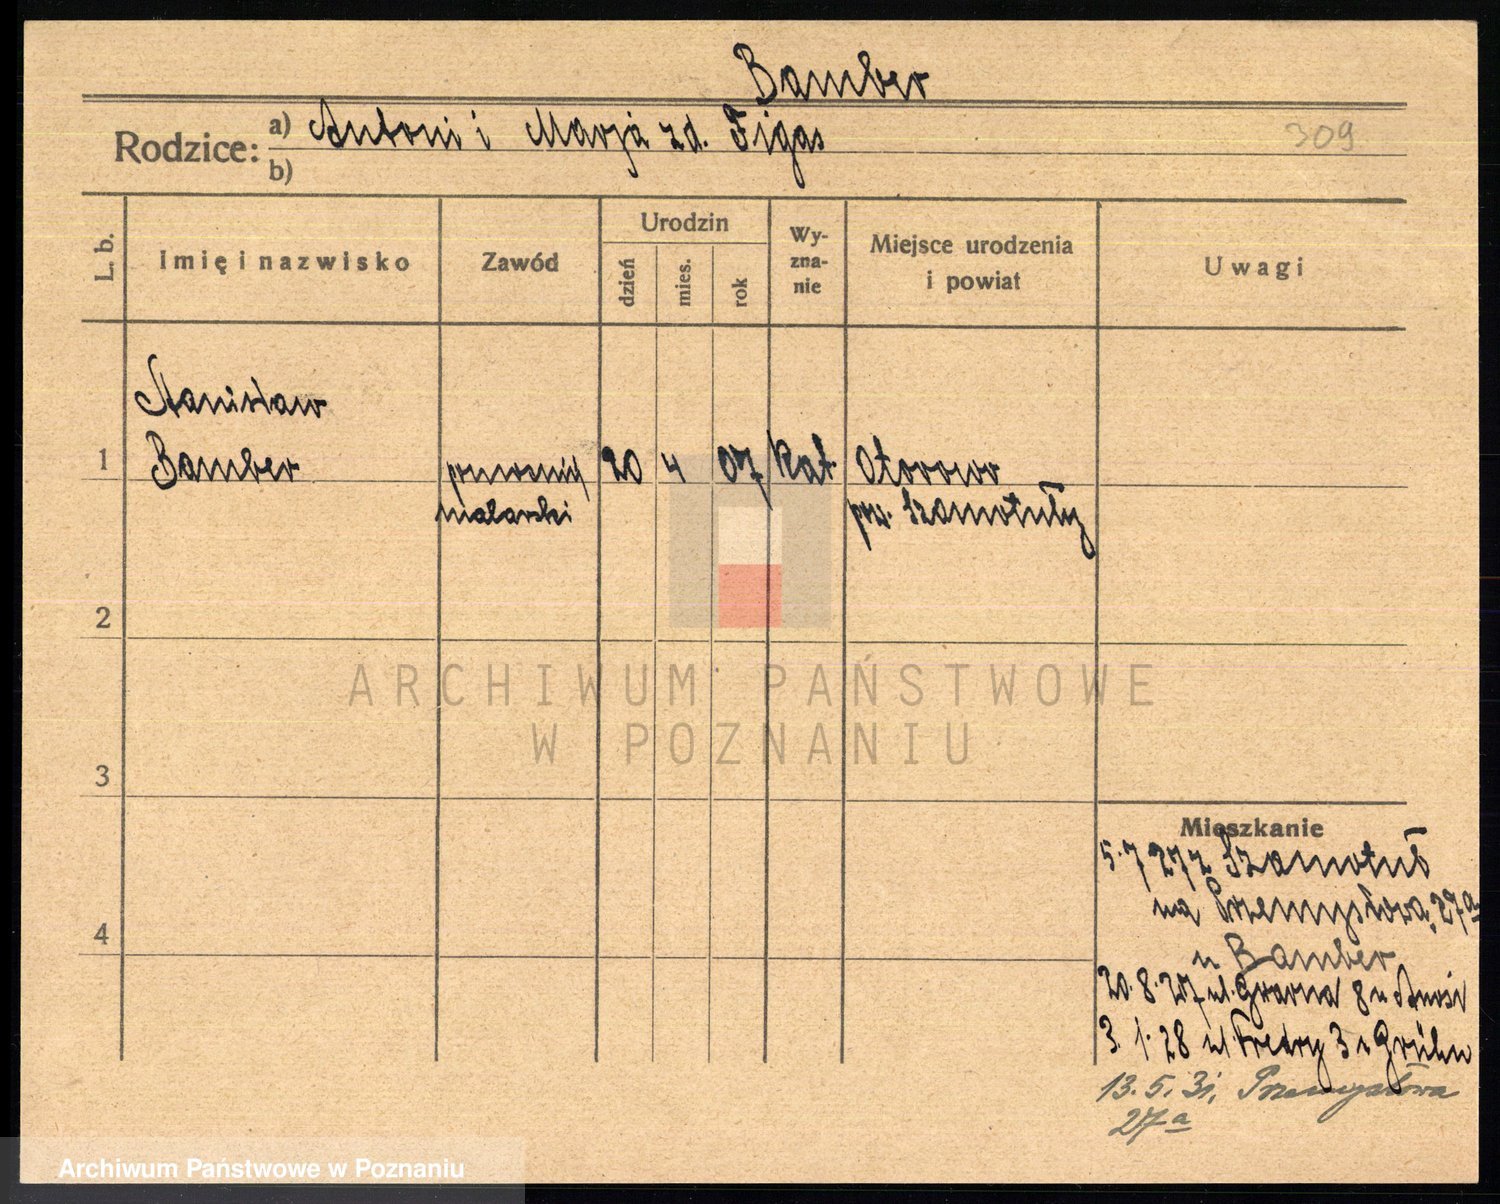 Bamber
Rodzice:
a) Antoni i Marja zd. Figas
309
b)
L. b.
Imię i nazwisko
Zawód
Urodzin
dzień
mies.
rok
Wy-
zna-
nie
Miejsce urodzenia
i powiat
Uwagi
Stanisław
1 Bamber
20 4 07 kat. Otorowo
malarski pow. Szamotuły
2
3
4
ARCHIWUM PAŃSTWOWE
W POZNANIU
Mieszkanie
5.7 27 z Szamotuł
na Przemysłową 27a
u Bamber
20.8.27 ul. Górna 8 u
3.1.28 ul Fredry 3 u
13.5.31. Przemysłowa
27a
Archiwum Państwowe w Poznaniu